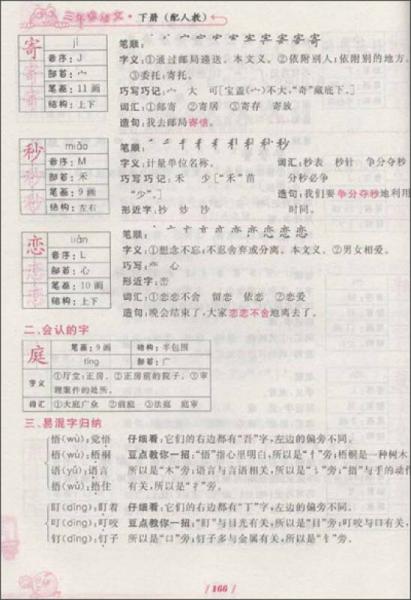 三年级语文·下册(配人教)
jì
寄
音序:J
部首:宀
笔画:11画
结构:上下
笔顺:
字义:①通过邮局递送。本文义。②依附别人;依附别的地方。
③委托:寄托。
巧写巧记:宀 大 可 [宝盖(宀)不大,"奇"藏底下。]
词汇:①邮寄 ②寄居 ③寄存 寄放
造句:我去邮局寄信。
miǎo
秒
音序:M
部首:禾
笔画:9画
结构:左右
笔顺:
字义:计量单位名称。 词汇:秒表 秒针 争分夺秒
巧写巧记:禾 少 ["禾"苗 分秒必争
"少"。] 造句:我们要争分夺秒地利用
形近字:抄 炒 沙 时间。
liàn
恋
音序:L
部首:心
笔画:10画
结构:上下
笔顺:
字义:①想念不忘;不忍舍弃或分离。本文义。②男女相爱。
巧写: 心
形近字:
词汇:①恋恋不舍 留恋 依恋 ②恋爱
造句:晚会结束了,大家恋恋不舍地离去了。
二、会认的字
庭
笔画:9画 结构:半包围
tíng 部首:广
字义 ①厅堂;正房。②正房前的院子。③审
理案件的处所。
词汇 ①大庭广众 ②前庭 ③法庭 庭审
三、易混字归纳
悟(wù):觉悟 仔细看:它们的右边都有"吾"字,左边的偏旁不同。
梧(wú):梧桐 豆点教你一招:"悟"指心里明白,所以是"忄"旁;梧桐是一种树木
语(yǔ):语言 所以是"木"旁;语言与言语相关,所以是"讠"旁;"捂"与手的动作
捂(wǔ):捂住 有关,所以是"扌"旁。
盯(dīng):盯着 仔细看:它们的右边都有"丁"字,左边的偏旁不同。
叮(dīng):叮咬 豆点教你一招:"盯"与目光有关,所以是"目"旁;叮咬与口有关,
钉(dīng):钉子 所以是"口"旁;钉子多与金属有关,所以是"钅"旁。
166